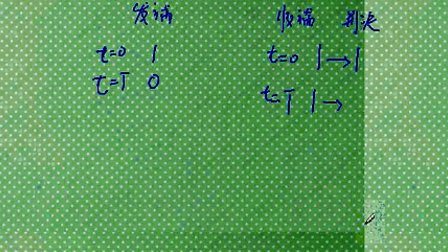 发端 收端 判决
t=0 1 t=0 1→1
t=T 0 t=T 1→